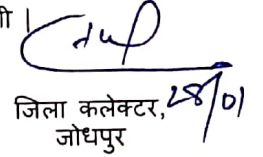 गी।
जिला कलेक्टर, 28/01
जोधपुर